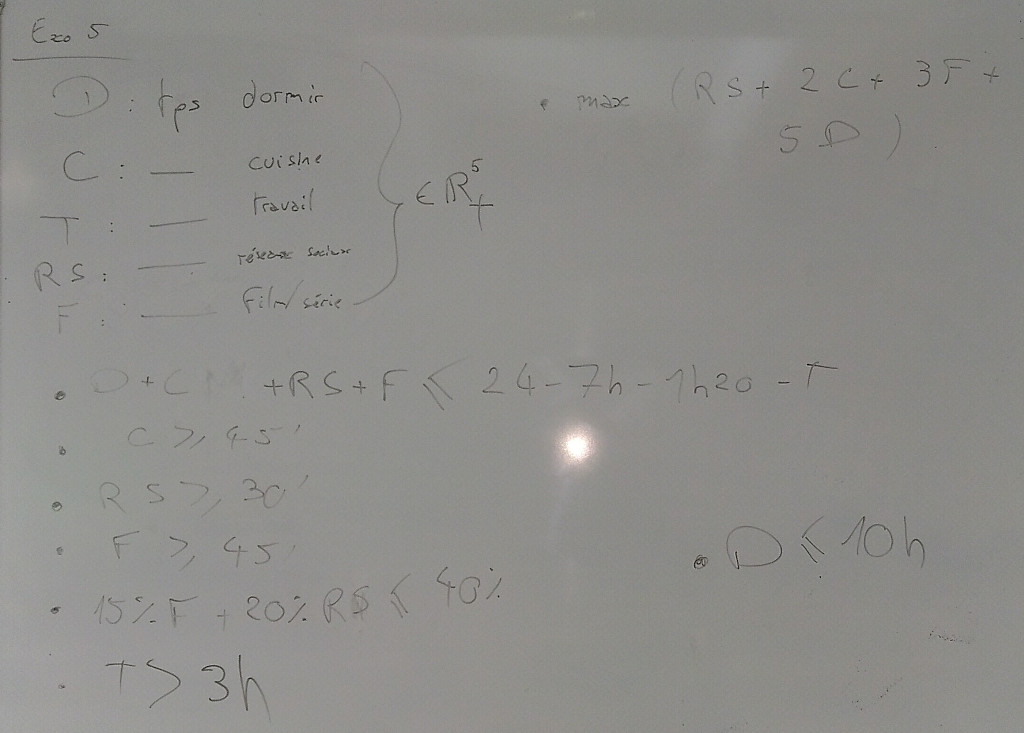 Exo 5
D : tps dormir
C : — cuisine
T : — travail
RS : — réseaux sociaux
F : — film/série
∈ R₊⁵
• max (RS + 2C + 3F +
5D)
• D + C + RS + F ≤ 24 - 7h - 1h20 - T
• C ≥ 45'
• RS ≥ 30'
• F ≥ 45'
• 15% F + 20% RS ≤ 40%
• T > 3h
• D ≤ 10h